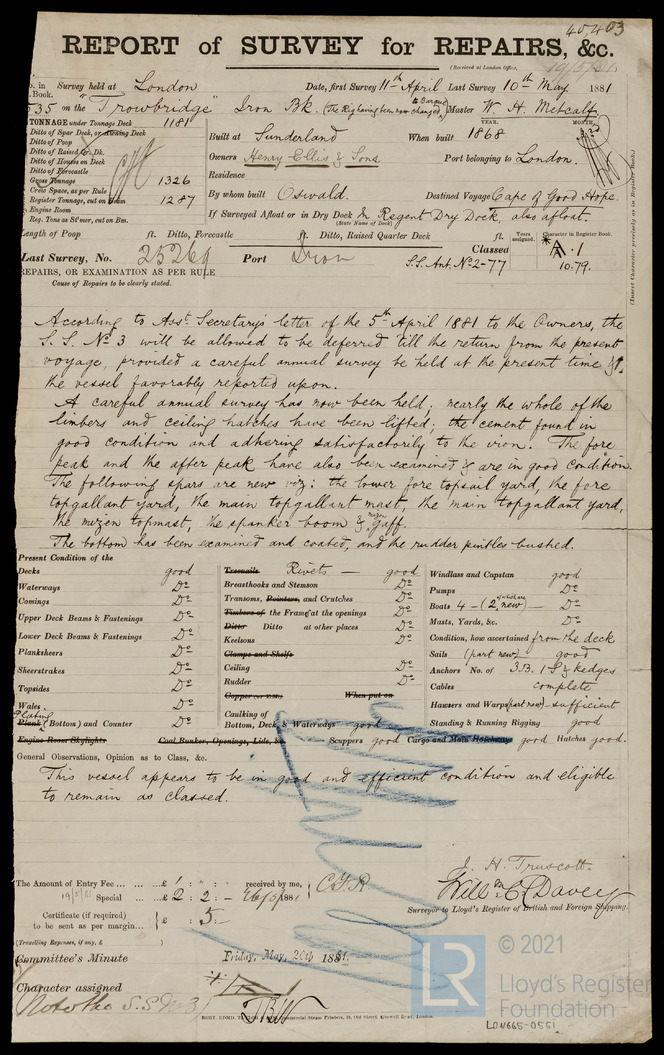 45,403
REPORT of SURVEY for REPAIRS, &c.
(Received at London Office, 19/5/81
o. in Survey held at London Date, first Survey 11th April Last Survey 10th May 1881
. Book.
535 on the "Trowbridge" Iron Bk. (The Rig having been now changed to Barque) Master W. H. Metcalf
TONNAGE under Tonnage Deck 1181
Ditto of Spar Deck, or Awning Deck
Ditto of Poop
Ditto of Raised Qr. Dk.
Ditto of Houses on Deck
Ditto of Forecastle
Gross Tonnage 1326
Crew Space, as per Rule
Register Tonnage, cut on Beam 1287
Engine Room
Reg. Tons as St'mer, cut on Bm.
YEAR. MONTH.
Built at Sunderland When built 1868
Owners Henry Ellis & Sons Port belonging to London.
Residence
By whom built Oswald. Destined Voyage Cape of Good Hope.
If Surveyed Afloat or in Dry Dock In Regent Dry Dock, also afloat.
(State Name of Dock)
Length of Poop ft. Ditto, Forecastle ft. Ditto, Raised Quarter Deck ft. Years assigned. Character in Register Book.
Last Survey, No. 25269 Port Iron Classed A.1
S.S. Ant. No 2-77 10.79.
(Insert Character precisely as in Register Book)
REPAIRS, OR EXAMINATION AS PER RULE
Cause of Repairs to be clearly stated.
According to Asst. Secretary's letter of the 5th April 1881 to the Owners, the
S.S. No 3 will be allowed to be deferred till the return from the present
voyage, provided a careful annual survey be held at the present time &
the vessel favorably reported upon.
A careful annual survey has now been held; nearly the whole of the
limbers and ceiling hatches have been lifted; the cement found in
good condition and adhering satisfactorily to the iron. The fore
peak and the after peak have also been examined & are in good condition.
The following spars are new viz: the lower fore topsail yard, the fore
topgallant yard, the main topgallant mast, the main topgallant yard,
the mizen topmast, the spanker boom & mizen gaff.
The bottom has been examined and coated, and the rudder pintles bushed.
Present Condition of the
Decks good
Waterways Do
Comings Do
Upper Deck Beams & Fastenings Do
Lower Deck Beams & Fastenings Do
Planksheers Do
Sheerstrakes Do
Topsides Do
Wales Do
Plating
Plank (Bottom) and Counter Do
Engine Room Skylights
Treenails Rivets — good
Breasthooks and Stemson Do
Transoms, Pointers, and Crutches Do
Timbers of the Frame at the openings Do
Ditto Ditto at other places Do
Keelsons Do
Clamps and Shelfs
Ceiling Do
Rudder Do
Copper When put on
Caulking of
Bottom, Deck & Waterways good
Coal Bunker, Openings, Lids, &c. Scuppers good Cargo and Main Hatchways good Hatches good.
Windlass and Capstan good
Pumps Do
Boats 4 - (2 of which are new) - Do
Masts, Yards, &c. Do
Condition, how ascertained from the deck
Sails (part new) good
Anchors No. of 3B. 1S & kedges
Cables complete
Hawsers and Warps (part new) - sufficient
Standing & Running Rigging good
General Observations, Opinion as to Class, &c.
This vessel appears to be in good and efficient condition and eligible
to remain as classed.
The Amount of Entry Fee ... ... £ 1 : - : - received by me,
19/5/81 Special ... £ 2 : 2 : - 1881
Certificate (if required) to be sent as per margin... £ : 5 : -
(Travelling Expenses, if any, £ )
J. H. Truscott.
Surveyor to Lloyd's Register of British and Foreign Shipping.
Committee's Minute Friday, May, 20th 1881.
Character assigned
Note the S.S. No 3
© 2021
LR
Lloyd's Register
Foundation
LON665-0551